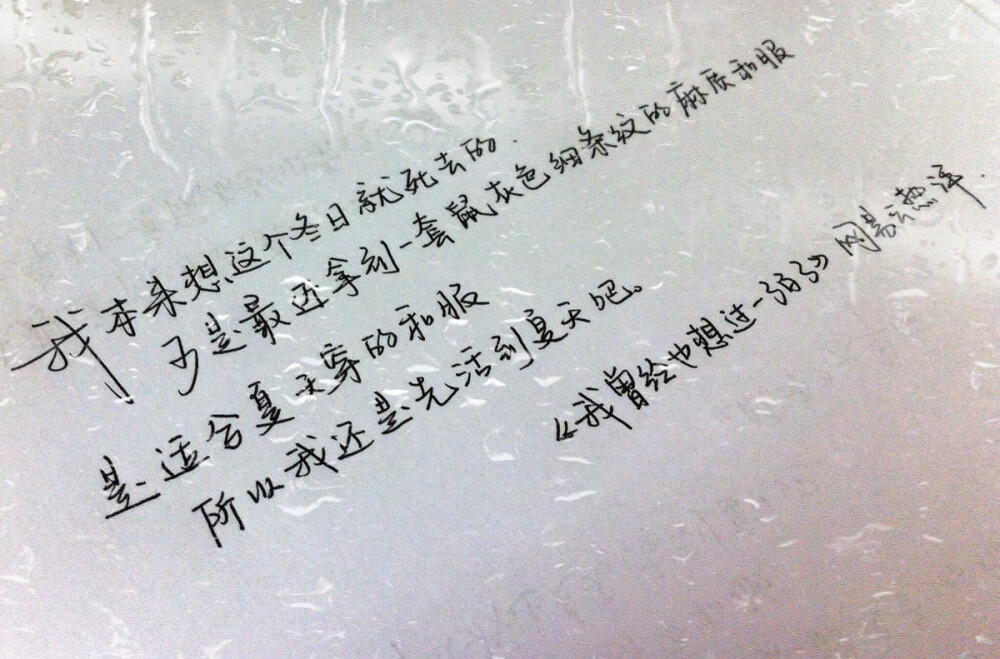 我本来想这个冬日就死去的.
可是最近拿到一套鼠灰色细条纹的麻质和服
是适合夏天穿的和服
所以我还是先活到夏天吧。
《我曾经也想过一了百了》网易云热评.